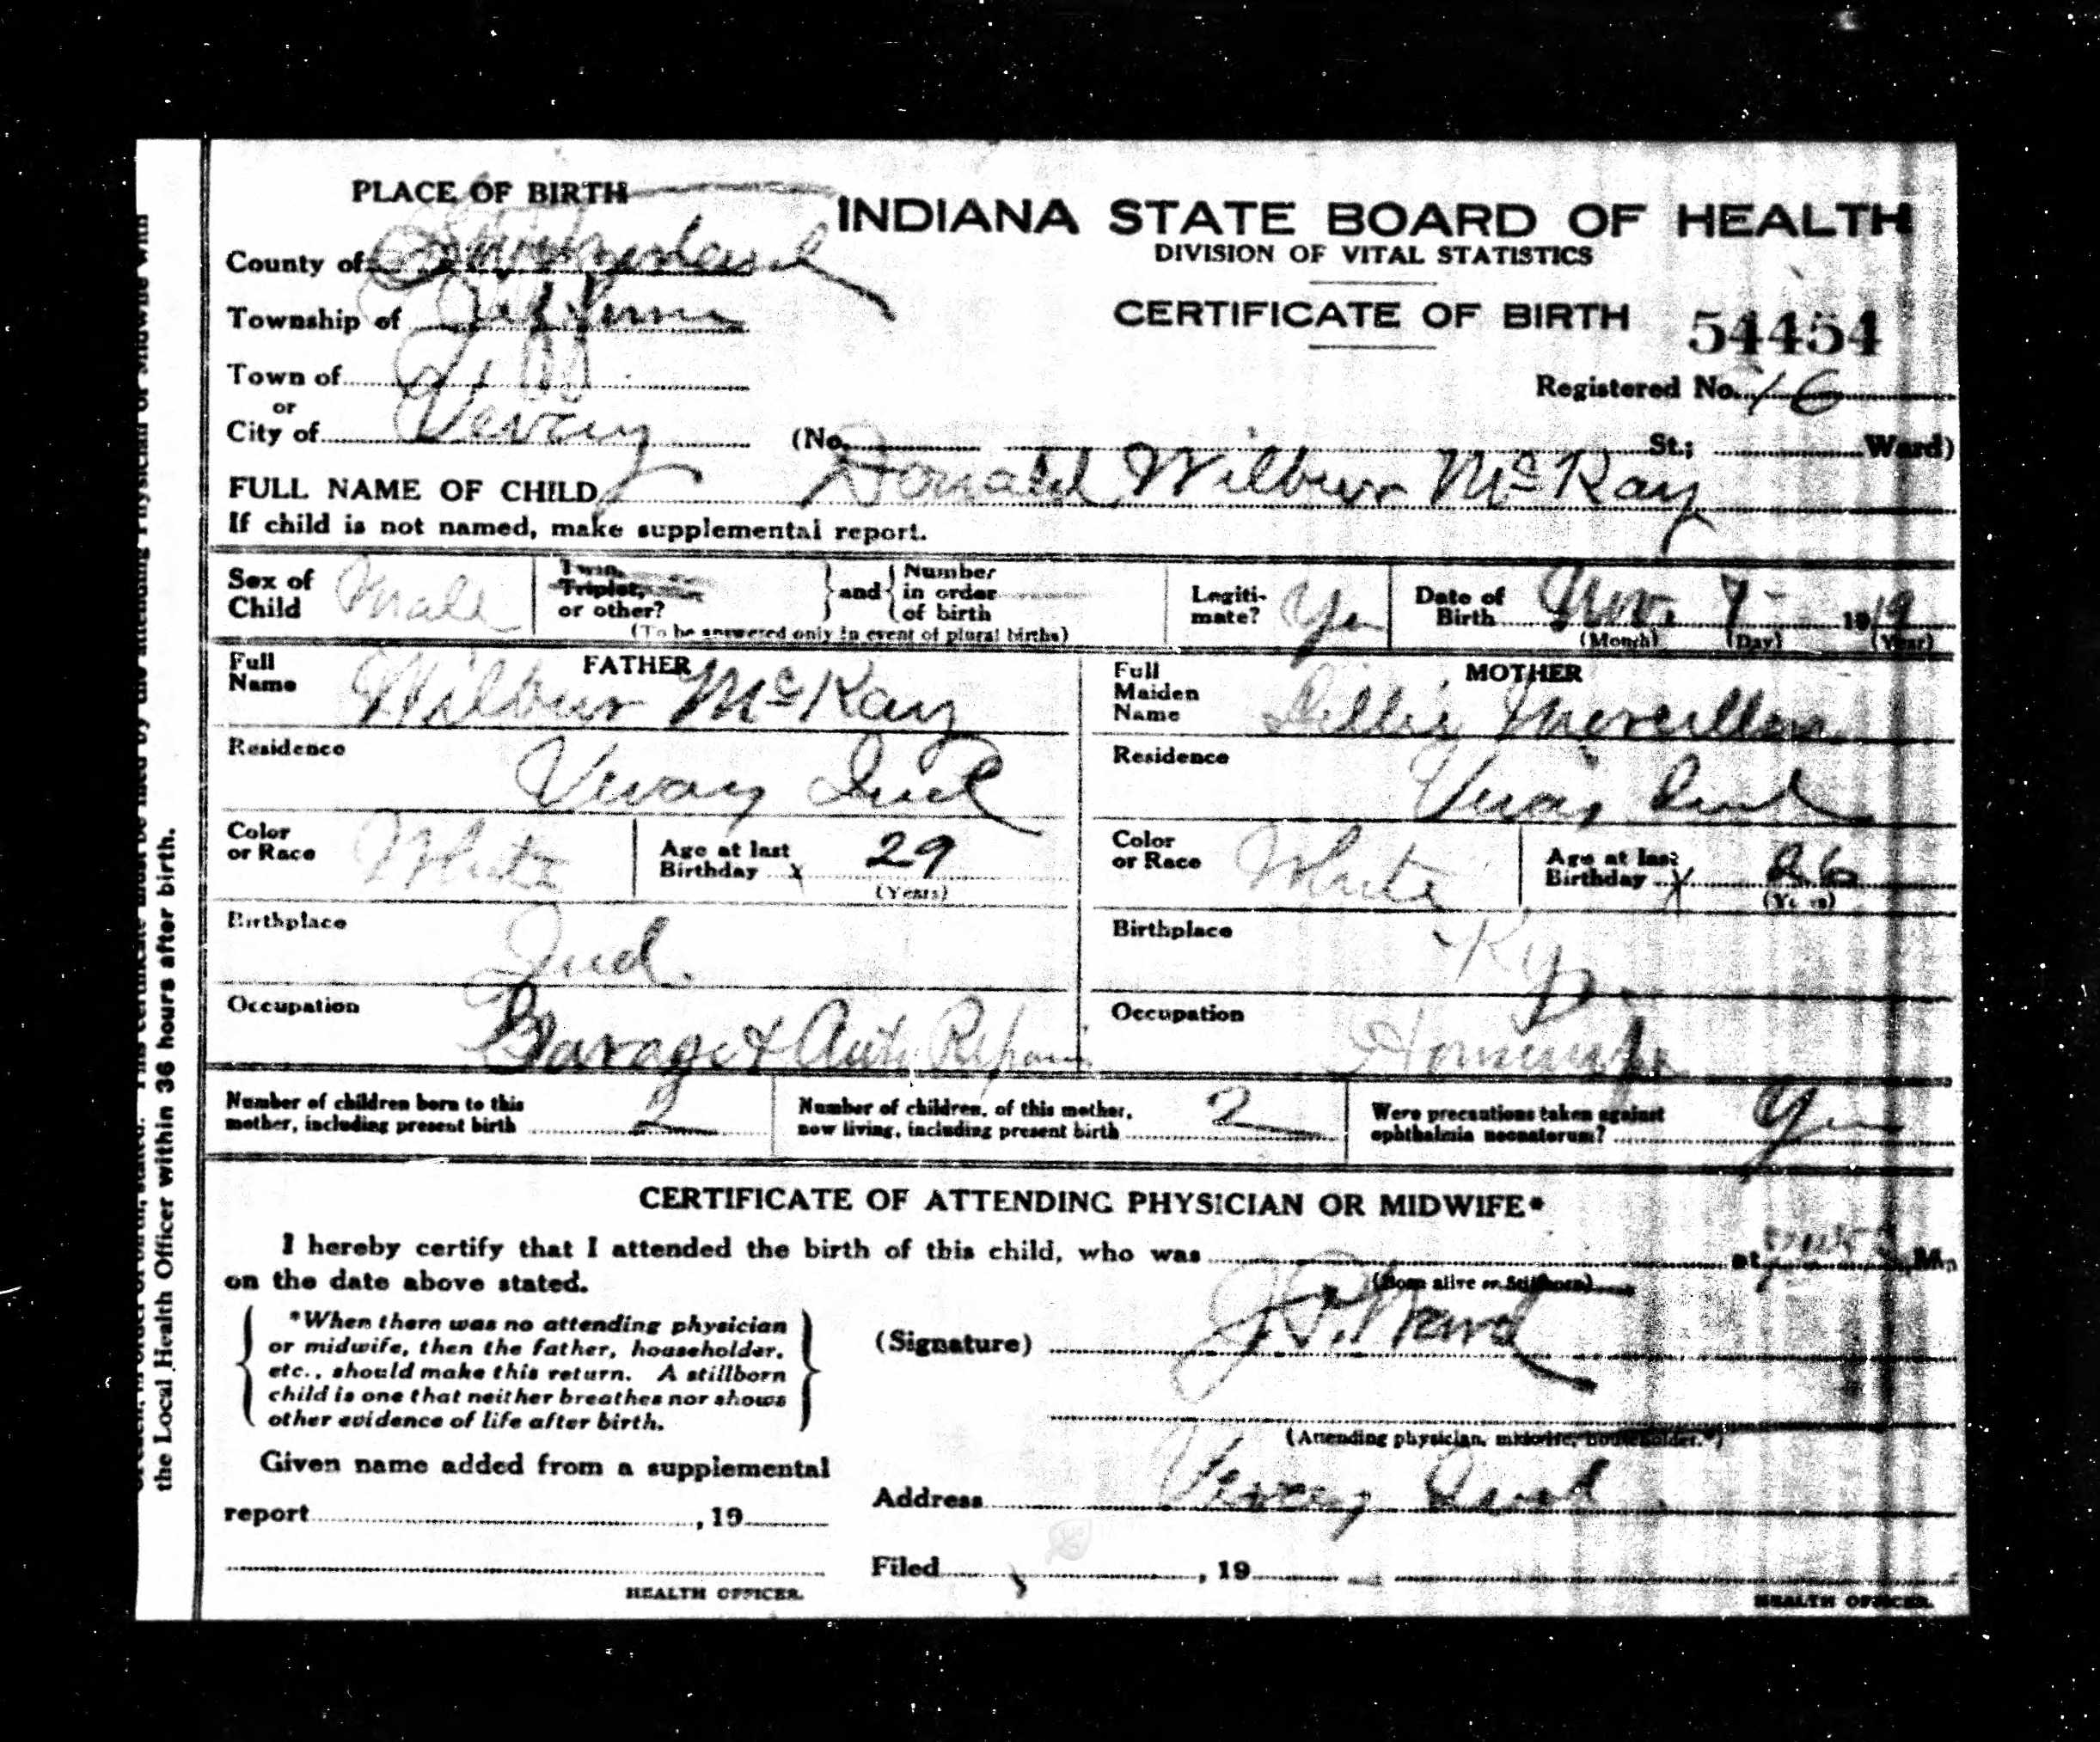 PLACE OF BIRTH
INDIANA STATE BOARD OF HEALTH
DIVISION OF VITAL STATISTICS
County of Switzerland
CERTIFICATE OF BIRTH 54454
Township of Jefferson
Town of
Registered No. 16
or
City of Vevay (No. St.; Ward)
FULL NAME OF CHILD Donald Wilbur McKay
If child is not named, make supplemental report.
Sex of Child Male
Twin, Triplet, or other? and Number in order of birth
(To be answered only in event of plural births)
Legiti-mate? Yes
Date of Birth Nov. 7 1919
(Month) (Day) (Year)
FATHER
Full Name Wilbur McKay
MOTHER
Full Maiden Name Lillie
Residence Vevay Ind
Residence Vevay Ind
Color or Race White
Age at last Birthday 29
(Years)
Color or Race White
Age at last Birthday 26
(Years)
Birthplace Ind.
Birthplace Ky.
Occupation Garage & Auto Repair
Occupation Housewife
Number of children born to this mother, including present birth 2
Number of children, of this mother, now living, including present birth 2
Were precautions taken against ophthalmia neonatorum? Yes
CERTIFICATE OF ATTENDING PHYSICIAN OR MIDWIFE*
I hereby certify that I attended the birth of this child, who was at M.,
(Born alive or Stillborn)
on the date above stated.
*When there was no attending physician
or midwife, then the father, householder,
etc., should make this return. A stillborn
child is one that neither breathes nor shows
other evidence of life after birth.
(Signature)
(Attending physician, midwife, householder.*)
Given name added from a supplemental
report , 19
Address Vevay Ind
Filed , 19
HEALTH OFFICER.
HEALTH OFFICER.
the Local Health Officer within 36 hours after birth.